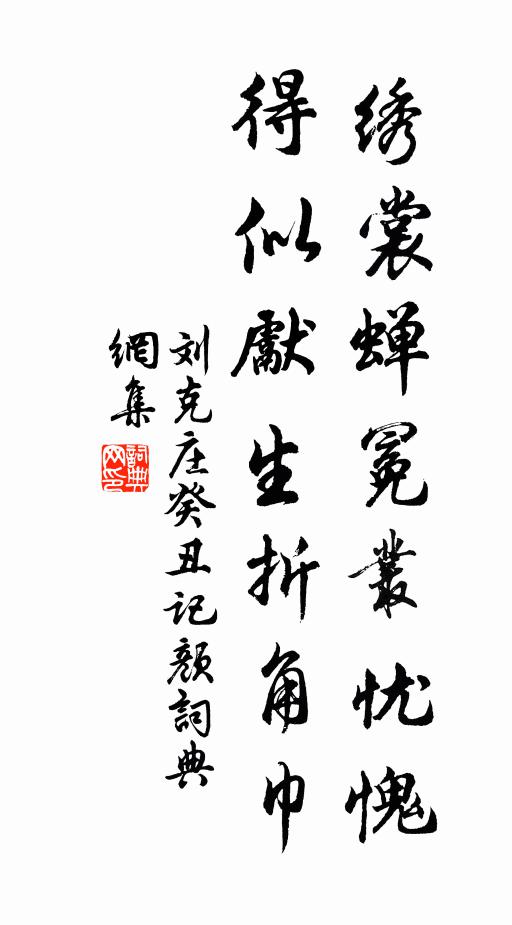 绣裳蝉冕丛忧愧
得似献生折角巾
刘克庄癸丑记颜詞典
網集
詞典网印